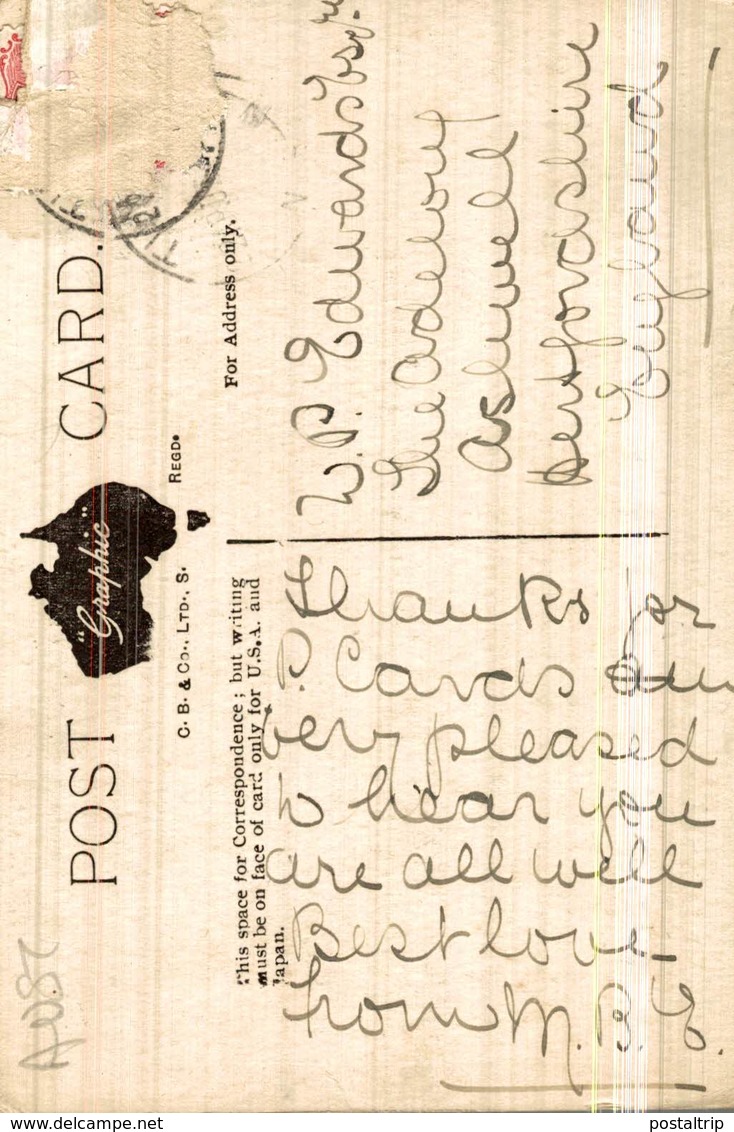 POST CARD.
"Graphic"
C. B. & Co., LTD., S. REGD.
This space for Correspondence; but writing
must be on face of card only for U.S.A. and
Japan.
For Address only.
Thanks for
P. Cards am
very pleased
to hear you
are all well
Best love
from M. B. E.
W. P. Edwards Esqre
Ashwell
Hertfordshire
England
AUST
www.delcampe.net
postaltrip